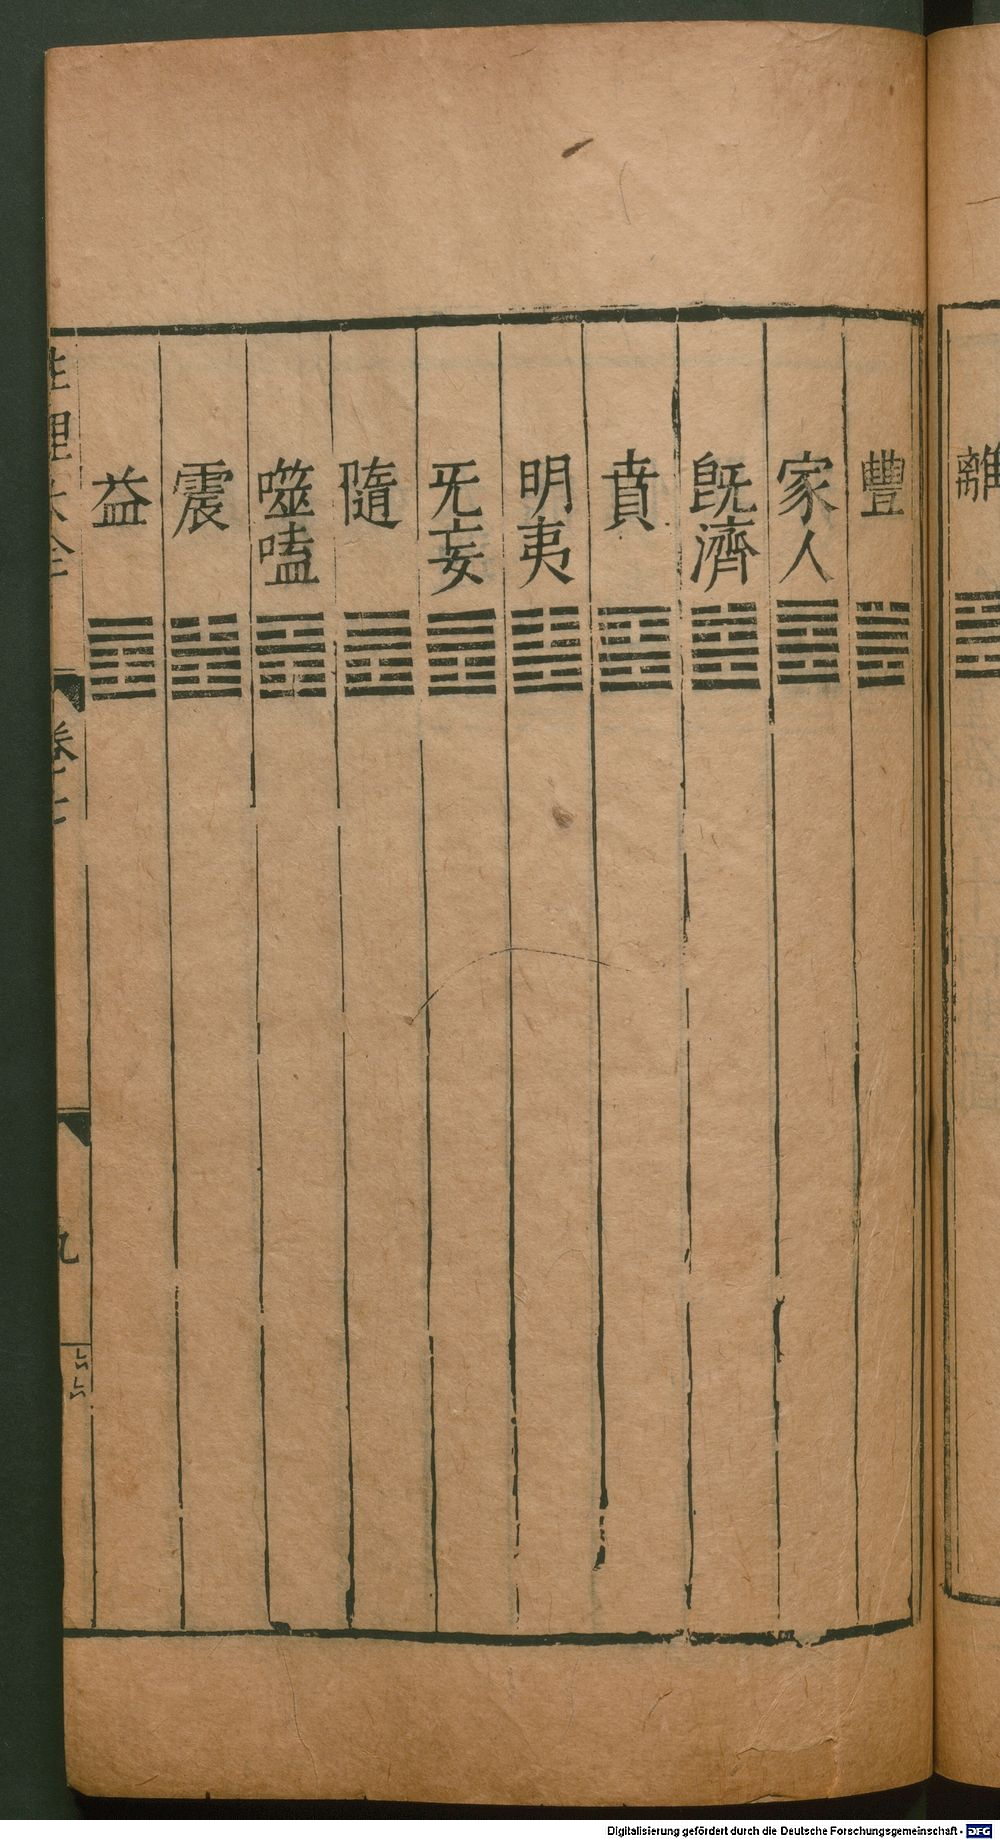 離
豐
家人
旣濟
賁
明夷
旡妄
隨
噬嗑
震
益
性理大全
卷七
九
Digitalisierung gefördert durch die Deutsche Forschungsgemeinschaft - DFG